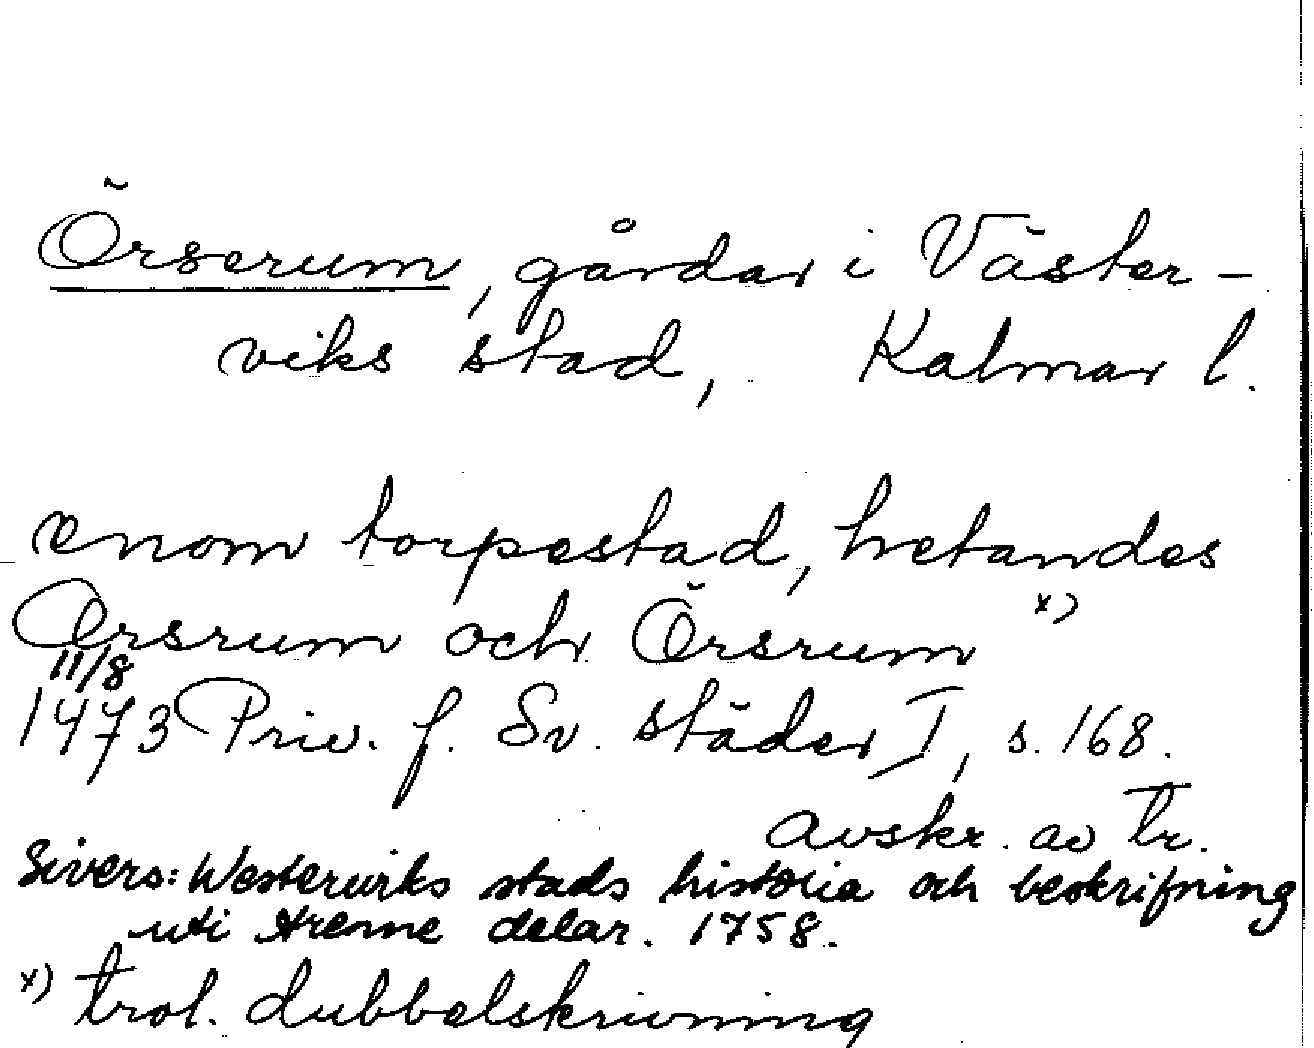 Örserum, gårdar i Väster-
viks stad, Kalmar l.
enom torpestad, hetandes
Ørsrum och Örsrum x)
11/8
1473 Priv. f. Sv. städer I, s. 168.
avskr. av tr.
Sivers: Westerwiks stads historia och beskrifning
uti trenne delar. 1758.
x) trol. dubbelskrivning